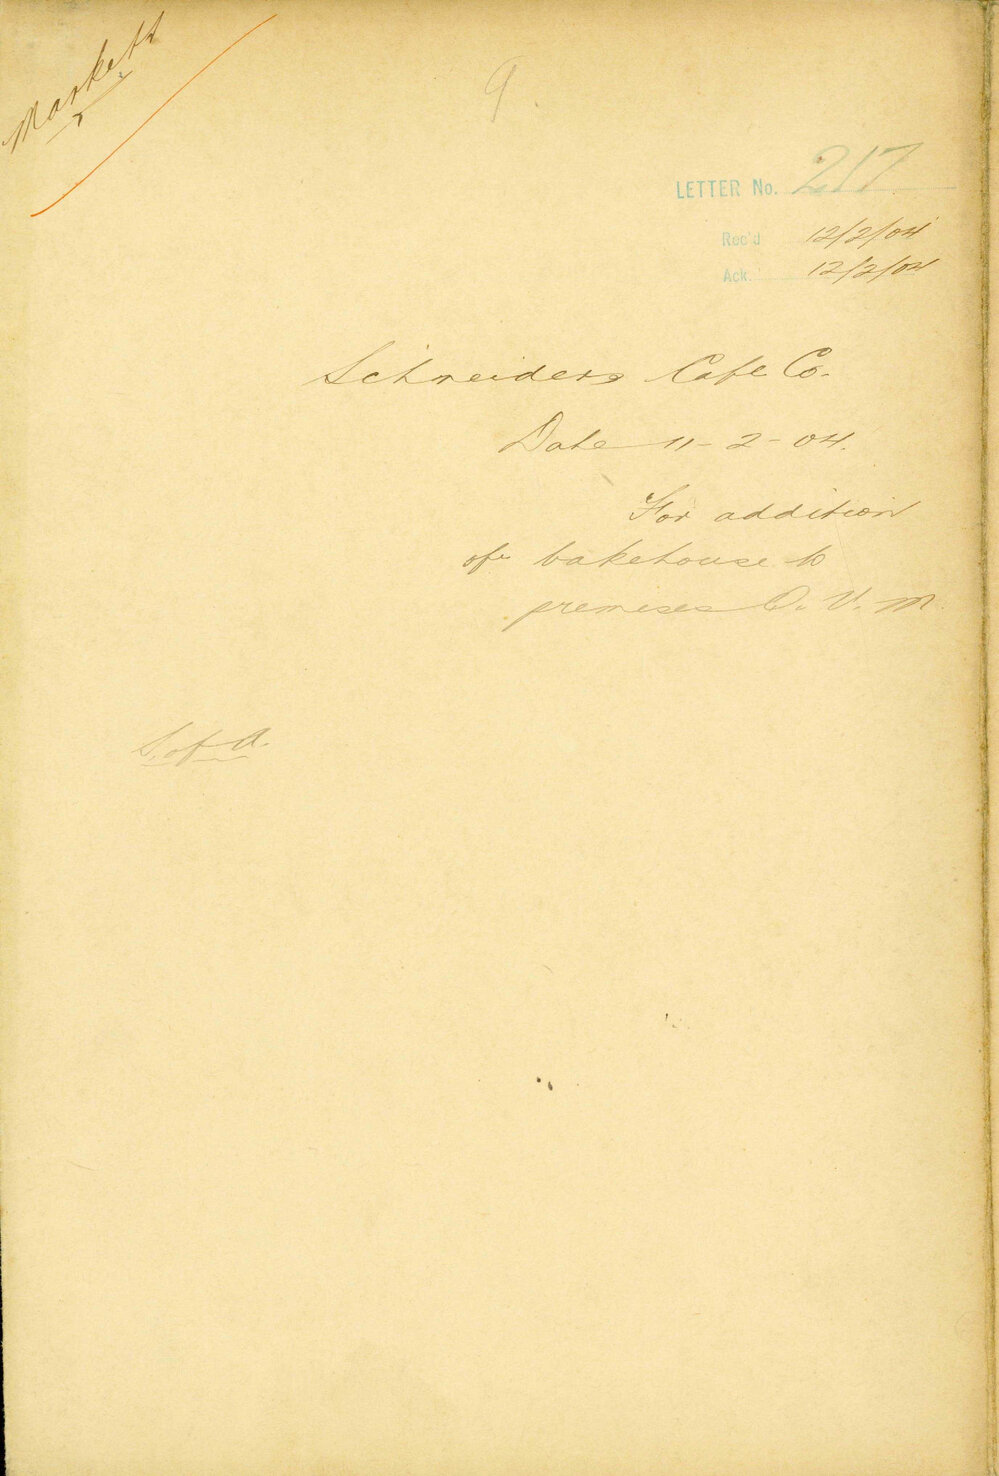 Markets
9.
LETTER No. 217
Rec'd 12/2/04
Ack. 12/2/04
Schneiders Cafe Co.
Date 11-2-04.
For addition
of bakehouse to
premises Q. V. M.
S. of A.